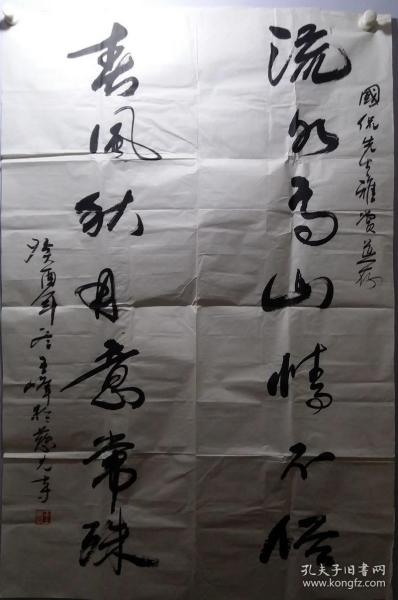 國侃先生雅賞并存
流水高山情不俗
春風秋月意常殊
癸酉年冬王峰於慈光寺
孔夫子旧书网
www.kongfz.com